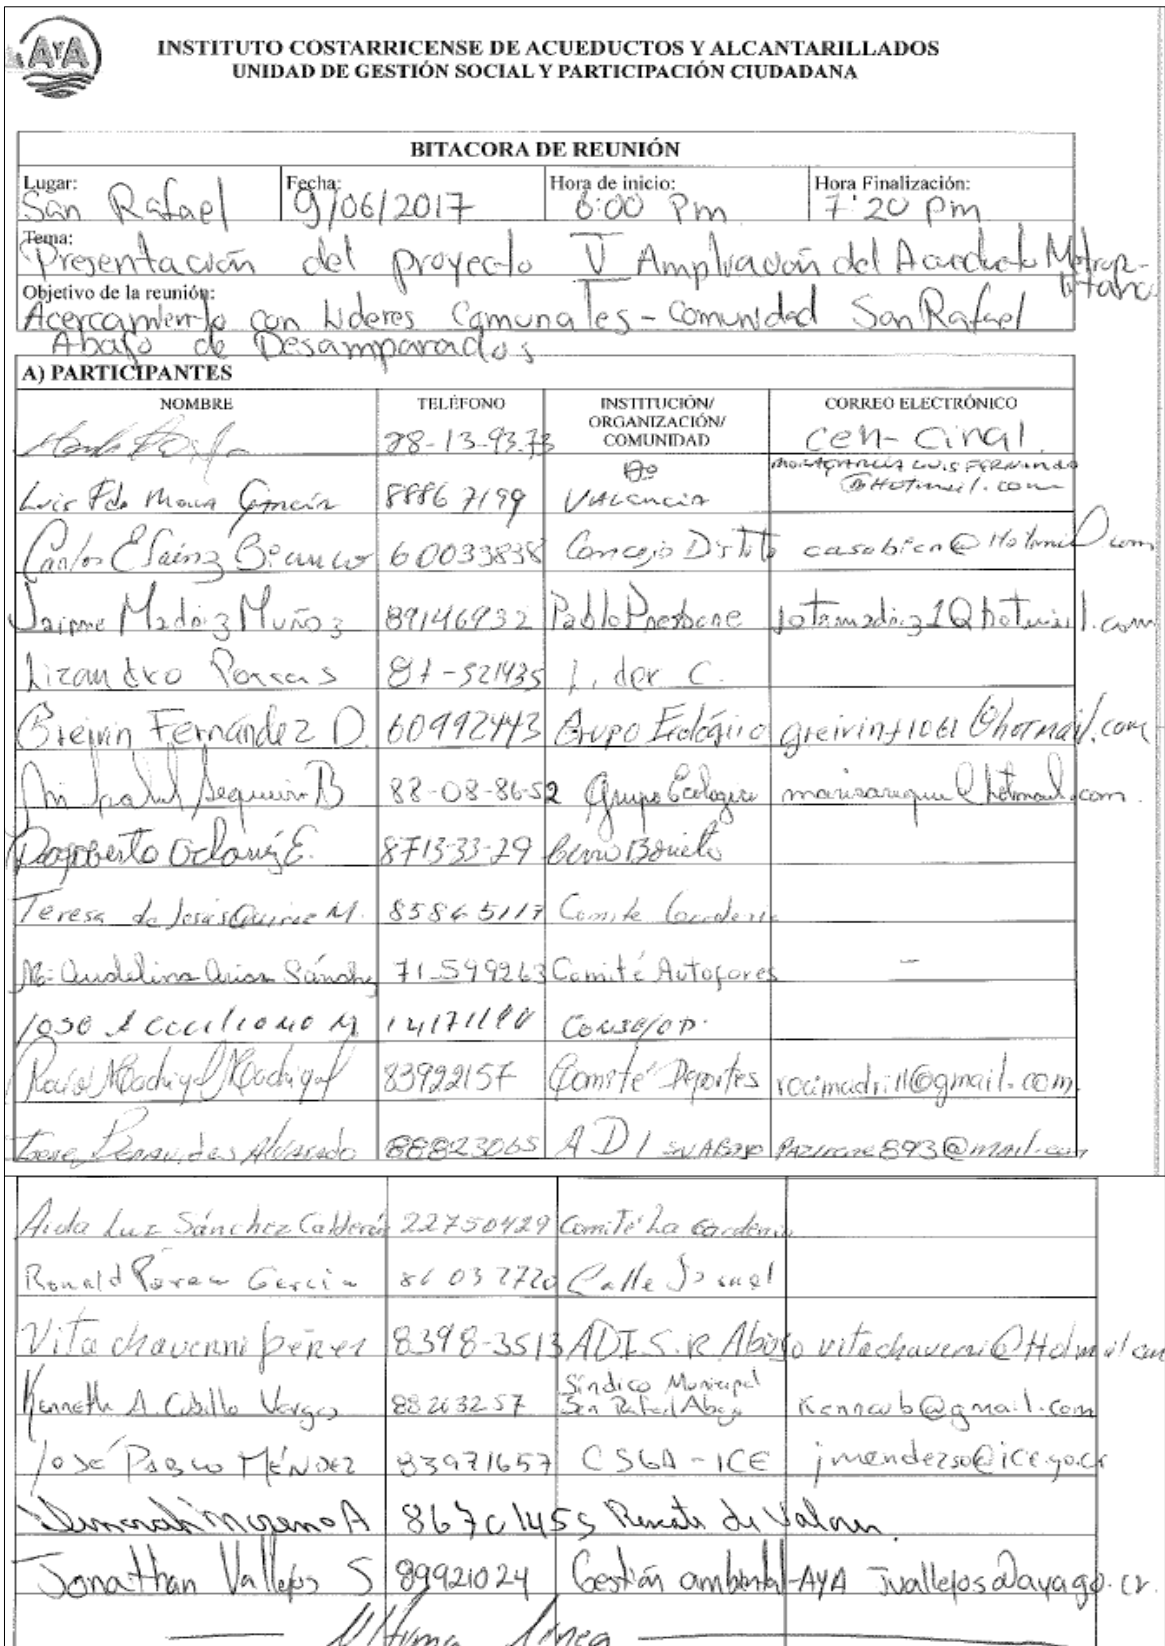 AyA
INSTITUTO COSTARRICENSE DE ACUEDUCTOS Y ALCANTARILLADOS
UNIDAD DE GESTIÓN SOCIAL Y PARTICIPACIÓN CIUDADANA
BITACORA DE REUNIÓN
Lugar: San Rafael Fecha: 9/06/2017 Hora de inicio: 6:00 Pm Hora Finalización: 7:20 pm
Tema: Presentación del proyecto V Ampliación del Acueducto Metropolitano
Objetivo de la reunión:
Acercamiento con Lideres Comunales - Comunidad San Rafael
Abajo de Desamparados
A) PARTICIPANTES
NOMBRE TELÉFONO INSTITUCIÓN/ ORGANIZACIÓN/ COMUNIDAD CORREO ELECTRÓNICO
28-13-93.73 cen-cinal
Luis Fdo Mora García 8886 7199 Bo Valencia moragarcia luis fernando @Hotmail.com
Carlos E Sáinz Bianco 60033838 Concejo Distrito casobien@Hotmail.com
Jaime Madriz Muñoz 89146932 Pablo Presbere jotamadriz1@hotmail.com
Lizandro Porras 87-521435 Lider C.
Greivin Fernández D. 60992443 Grupo Ecológico greivinf1061@hotmail.com
Ma Isabel Sequeira B 88-08-86-52 Grupo Ecologico marisareque@hotmail.com.
Dagoberto E. 8713-33-29 Cerro Bonito
Teresa de Jesús Quiroz M. 8586 5117 Comite Gardenia
Ma. Audelina Arias Sánchez 71-599263 Comité Autofores -
Jose A M Consejo D.
Rocío Madrigal Madrigal 83922157 Comité Deportes rocimadri11@gmail.com
Irene Benavides Alvarado 88823065 ADI San Abajo pazirene893@mail.com
Aida Luz Sánchez Calderón 22750429 Comité La Gardenia
Ronald Porras Garcia 86 03 2720 Calle
Vita chavenni pérez 8398-3513 ADI.S.R Abajo vitachaveni@Hotmail.com
Kenneth A. Cubillo Vargas 88263257 Síndico Municipal San Rafael Abajo kenncub@gmail.com
José Pablo Méndez 83971657 CSGA-ICE jmendezso@ice.go.cr
Moreno A 86701455 Rescate de Valores.
Jonathan Vallejos S 89921024 Gestión ambiental-AYA jvallejos@aya.go.cr.
Ultima Linea